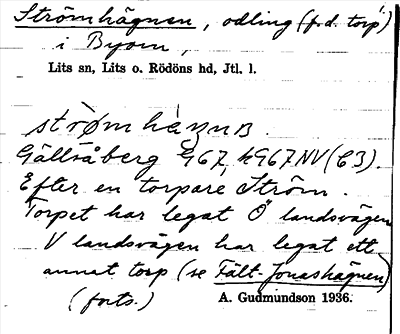 Strömhägnen, odling (f.d. torp)
i Byom,
Lits sn, Lits o. Rödöns hd, Jtl. l.
strömhägnɐ.
Gällsåberg 967, h967NV (C3).
Efter en torpare Ström.
Torpet har legat Ö landsvägen
V landsvägen har legat ett
annat torp (se Fält-Jonashägnen)
(forts.)
A. Gudmundson 1936.